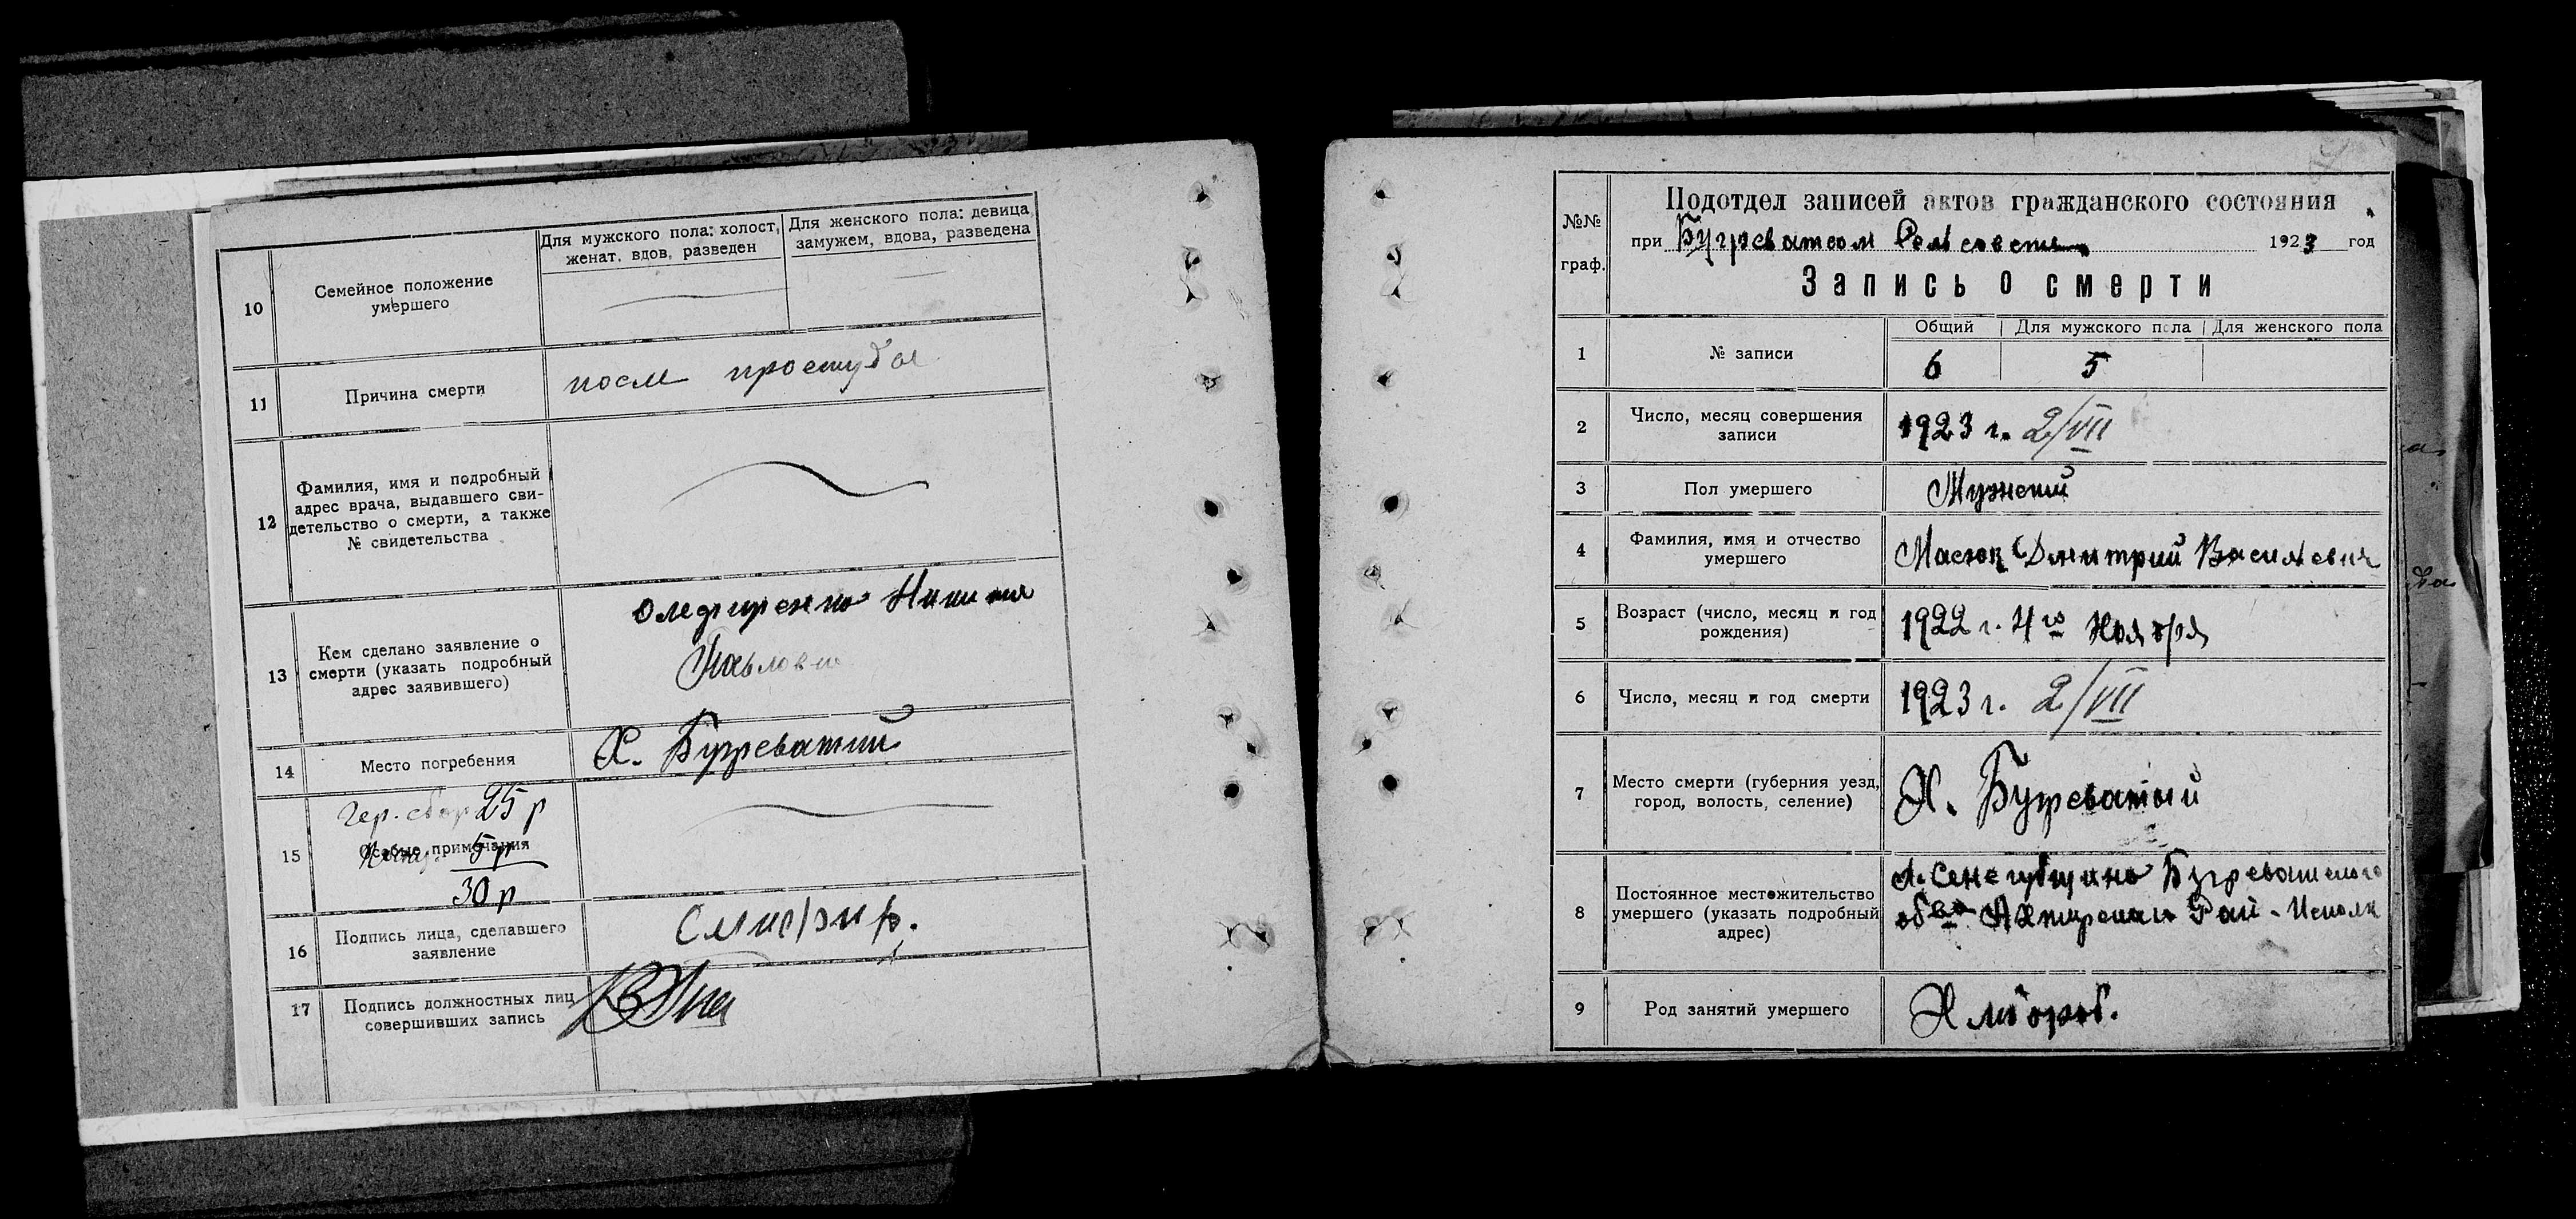 10
Семейное положение
умершего
Для мужского пола: холост,
женат, вдов, разведен
Для женского пола: девица
замужем, вдова, разведена
11
Причина смерти
посли простуды
12
Фамилия, имя и подробный
адрес врача, выдавшего сви-
детельство о смерти, а также
№ свидетельства
13
Кем сделано заявление о
смерти (указать подробный
адрес заявившего)
Олефиренко
Павлов
14
Место погребения
Х. Бугреватий
15
Гер. сбор 25 р
Особые примечания
5 р
30 р
16
Подпись лица, сделавшего
заявление
17
Подпись должностных лиц
совершивших запись
№№
граф.
Подотдел записей актов гражданского состояния
при Бугреватом Сельсовете 1923 год
Запись о смерти
1
№ записи
Общий
Для мужского пола
Для женского пола
6
5
2
Число, месяц совершения
записи
1923 г. 2/VII
3
Пол умершего
Мужский
4
Фамилия, имя и отчество
умершего
Масюк Дмитрий Василевич
5
Возраст (число, месяц и год
рождения)
1922 г. 4го Ноября
6
Число, месяц и год смерти
1923 г. 2/VII
7
Место смерти (губерния уезд,
город, волость, селение)
Х. Бугреватый
8
Постоянное местожительство
умершего (указать подробный
адрес)
Бугреватского
Рай-Исполк
9
Род занятий умершего
Хлібороб.